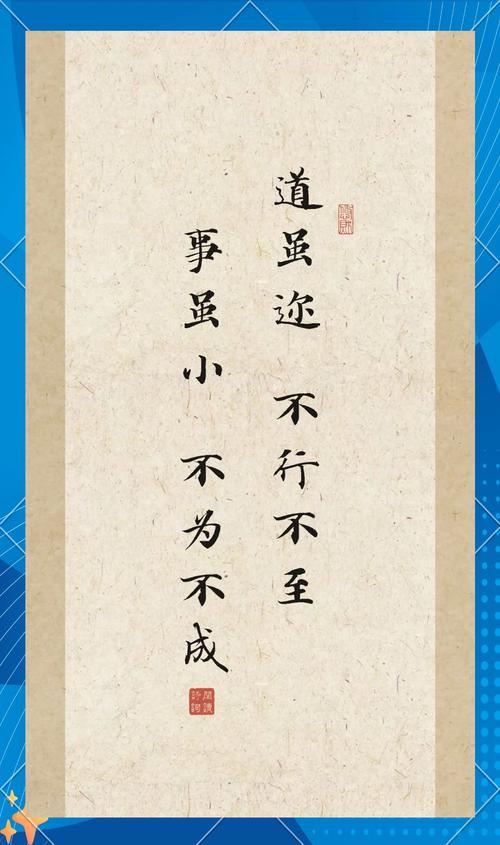 道虽迩 不行不至
事虽小 不为不成